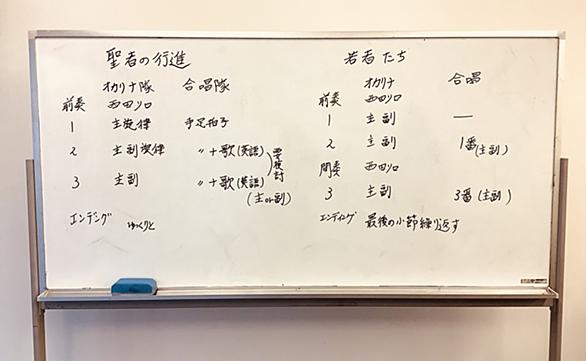 聖者の行進
オカリナ隊 合唱隊
前奏 西田ソロ
1 主旋律 手足拍子
2 主副旋律 〃+歌(英語)
3 主副 〃+歌(英語)
要検討
(主or副)
エンデング ゆっくりと
若者たち
オカリナ 合唱
前奏 西田ソロ
1 主副 —
2 主副 1番(主副)
間奏 西田ソロ
3 主副 3番(主副)
エンディング 最後の小節繰り返す